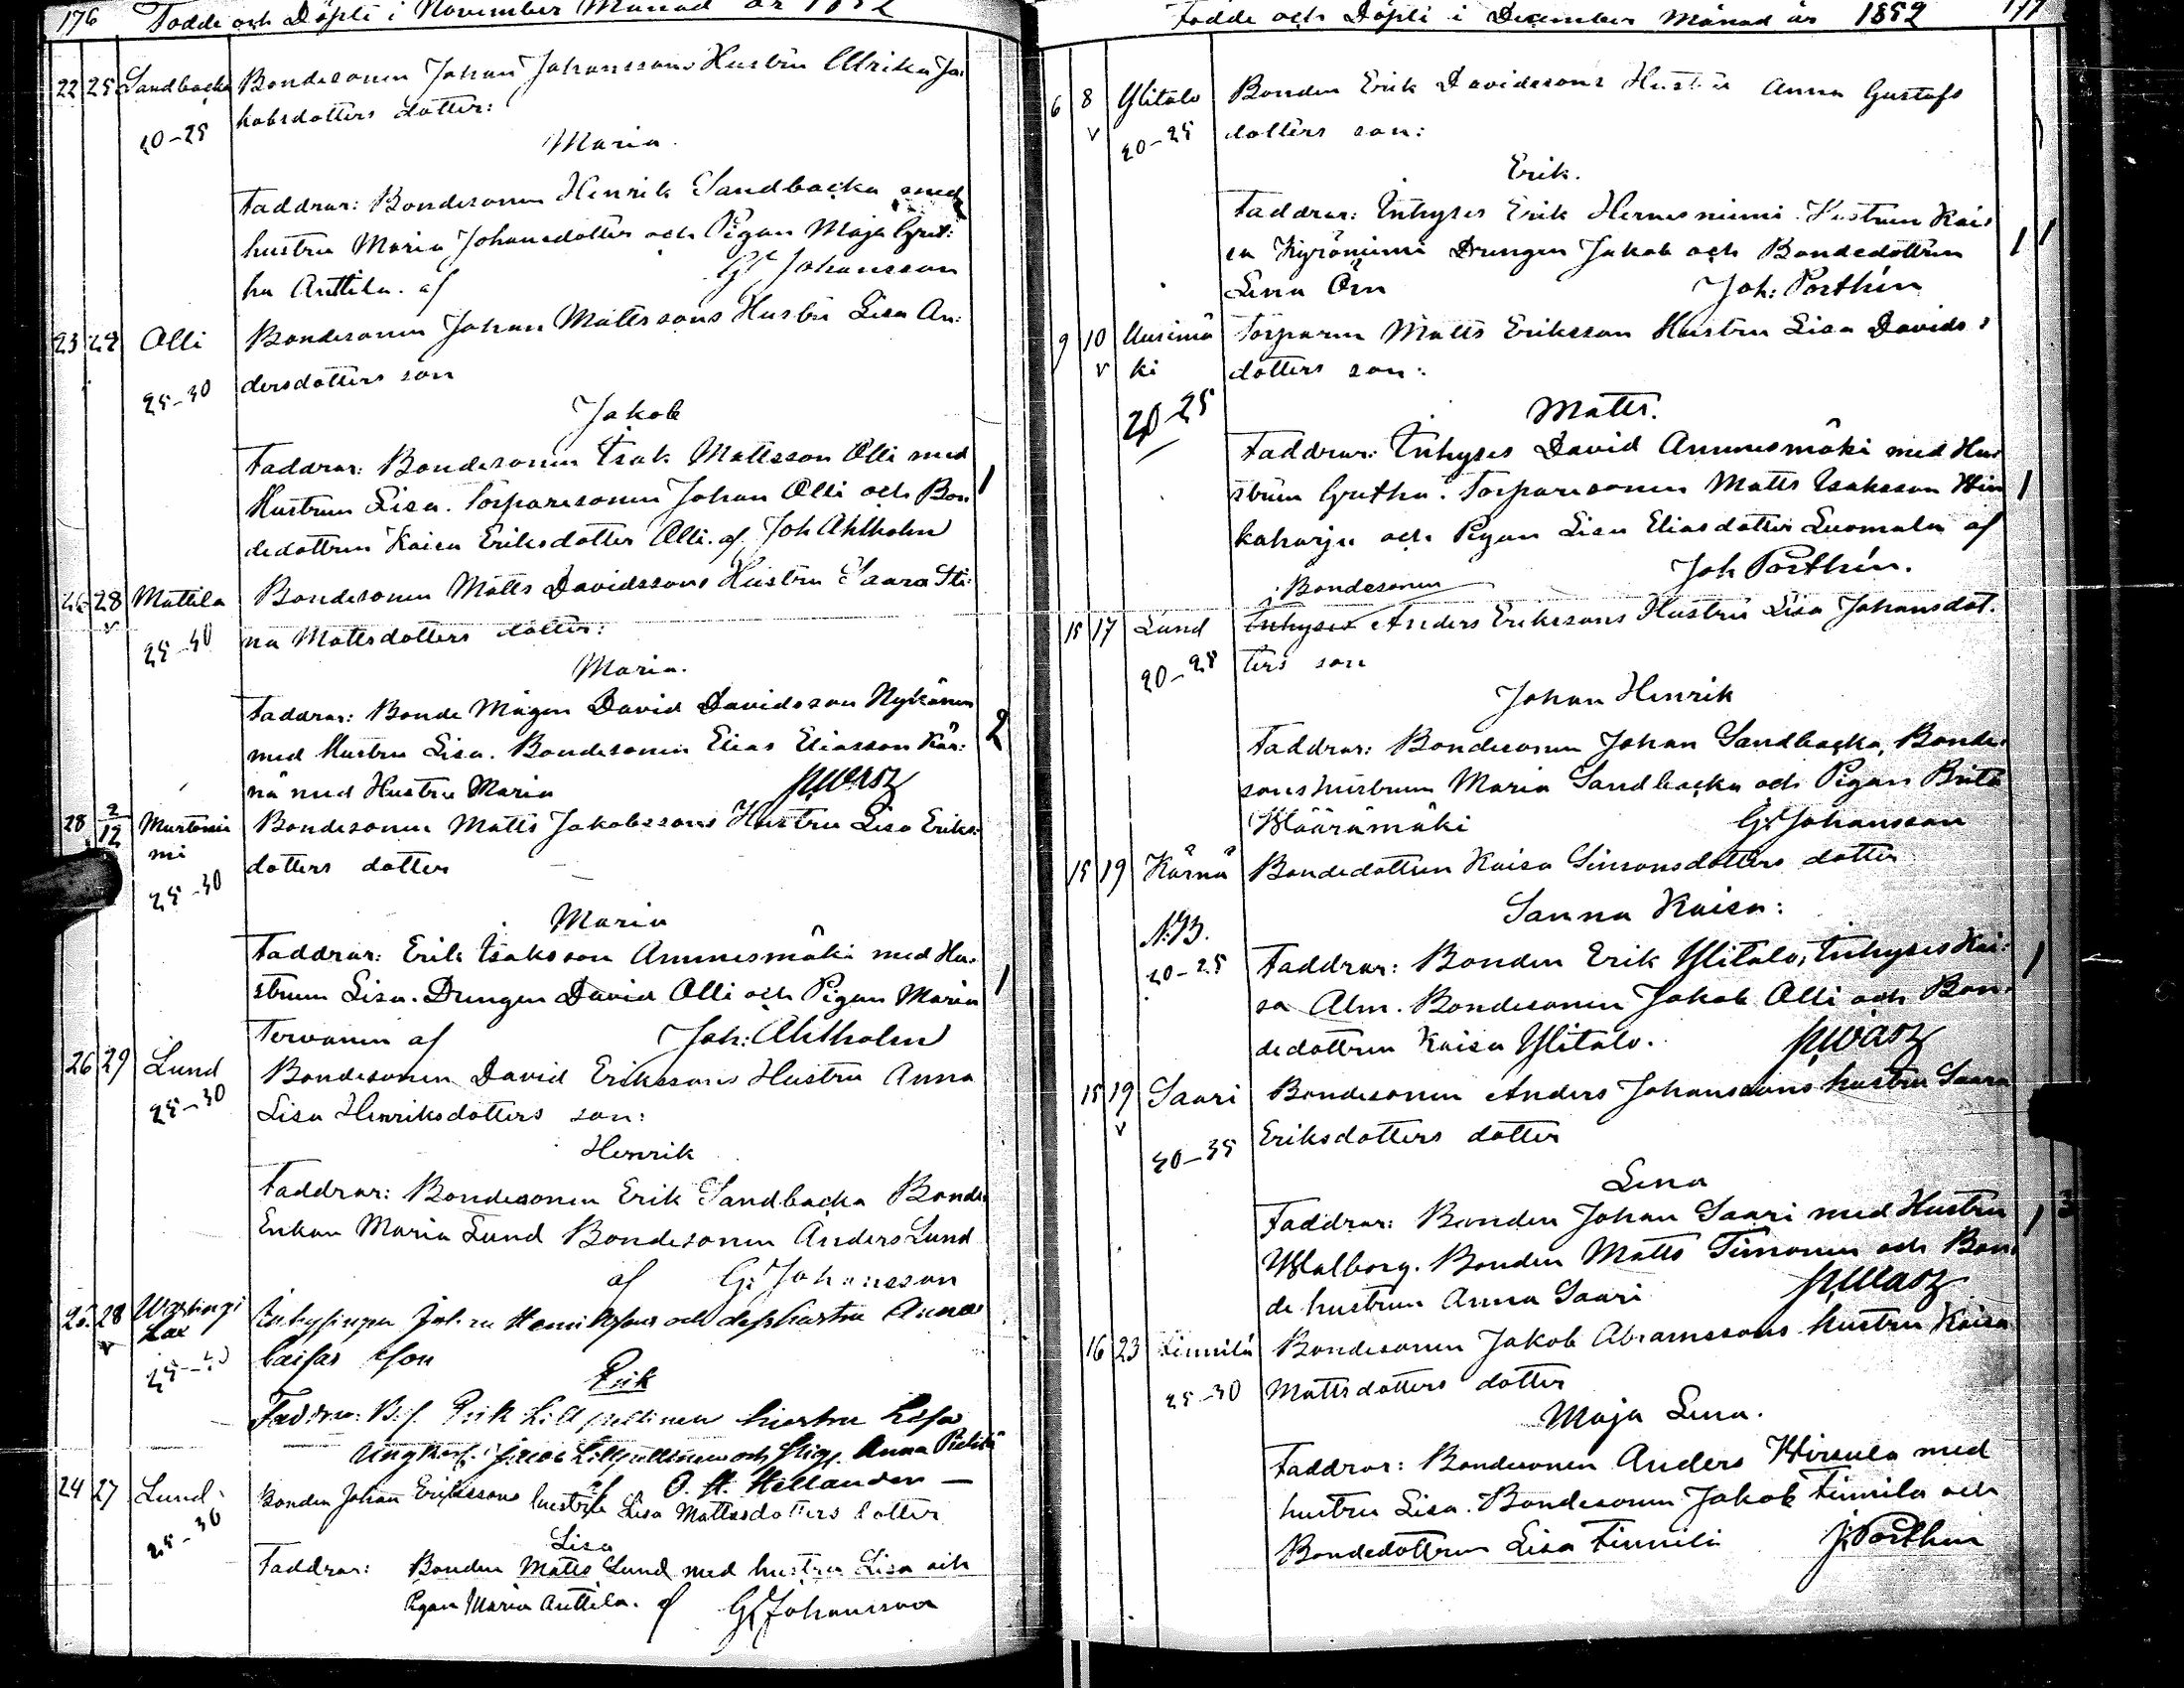 176 Födde och Döpte i November Månad år 1852
22 25 Sandbacka Bondesonen Johan Johanssons Hustru Ulrika Ja:
kobsdotters dotter:
20-25
Maria.
Faddrar: Bondesonen Henrik Sandbacka med
hustru Maria Johansdotter och Pigan Maja Gret:
ha Anttila. af G: Johansson
23 29 Olli Bondesonen Johan Mattssons Hustru Lisa An:
dersdotters son
25-30
Jakob
Faddrar: Bondesonen Isak Mattsson Olli med
Hustrun Lisa. Torparesonen Johan Olli och Bon
dedottren Kaisa Eriksdotter Olli. af Joh Ahlholm
26 28 Mattila Bondesonen Matts Davidssons Hustru Saara Sti:
na Mattsdotters dotter:
25-30
Maria.
Faddrar: Bonde Mågen David Davidsson Nykänen
med Hustru Lisa. Bondesonen Elias Eliasson Kär:
nä med Hustru Maria
2
28 2/12 Murtoni Bondesonen Matts Jakobssons Hustru Lisa Eriks:
mi dotters dotter
25-30
Maria
Faddrar: Erik Isaksson Ammesmäki med Hu:
strun Lisa. Drengen David Olli och Pigan Maria
Tervonen af Joh: Ahlholm
26 29 Lund Bondesonen David Erikssons Hustru Anna
Lisa Henriksdotters son:
25-30
Henrik
Faddrar: Bondesonen Erik Sandbacka Bonde
Enkan Maria Lund Bondesonen Anders Lund
af G: Johansson
28 Inhysingen Johan Henrikssons och dess hustru Anna
Caisas son
Erik
Faddrar: Erik hustru Lisa
och Pig. Anna
af O. H. Hellander
24 27 Lund Bonden Johan Erikssons hustru Lisa Mattsdotters dotter
25-30
Lisa
Faddrar: Bonden Matts Lund med hustru Lisa och
Pigan Maria Anttila. af G: Johansson
Födde och Döpte i December Månad år 1852 177
6 8 Ylitalo Bonden Erik Davidssons Hustru Anna Gustafs
v 20-25 dotters son:
Erik.
Faddrar: Inhyses Erik Hernesniemi. Hustrun Kai:
sa Kyröniemi Drengen Jakob och Bondedottren
Lena Örn Joh: Porthén
9 10 Uusimä Torparen Matts Eriksson Hustru Lisa Davids:
v ki dotters son:
20-25
Matts.
Faddrar: Inhyses David Ammesmäki med Hu:
strun Gretha. Torparesonen Matts Isaksson Hin
kaharju och Pigan Lisa Eliasdotter Luomala af
Joh Porthén.
Bondesonen
15 17 Lund Inhyses Anders Erikssons Hustru Lisa Johansdot.
20-25 ters son
Johan Henrik
Faddrar: Bondesonen Johan Sandbacka, Bonde:
sons hustrun Maria Sandbacka och Pigan Brita
Wäärämäki G: Johansson
15 19 Kärnä Bondedottren Kaisa Simonsdotters dotter
Sanna Kaisa:
N:B.
20-25
Faddrar: Bonden Erik Ylitalo, Inhyses Kai:
sa Alm. Bondesonen Jakob Olli och Bon:
dedottren Kaisa Ylitalo.
15 19 Saari Bondesonen Anders Johanssons hustru Saara
v 30-35 Eriksdotters dotter
Lena
Faddrar: Bonden Johan Saari med Hustru
Walborg. Bonden Matts Timonen och Bon:
de hustrun Anna Saari
16 23 Finnilä Bondesonen Jakob Abramssons hustru Kaisa
25-30 Mattsdotters dotter
Maja Lena.
Faddrar: Bondesonen Anders Hirvela med
hustru Lisa. Bondesonen Jakob Finnila och
Bondedottren Lisa Finnilä J: Porthén